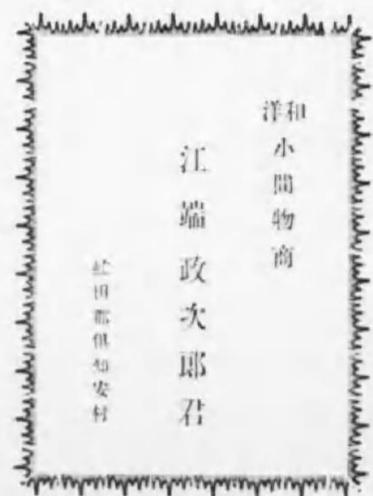 和洋小間物商
江端政次郎君
虻田郡倶知安村